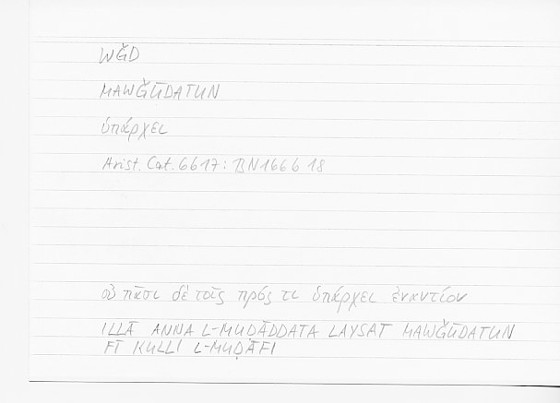 WǦD
MAWǦŪDATUN
ὑπάρχει
Arist. Cat. 6b17: BN166b18
οὐ πᾶσι δὲ τοῖς πρός τι ὑπάρχει ἐναντίον
ILLĀ ANNA L-MUḌĀDDATA LAYSAT MAWǦŪDATUN
FĪ KULLI L-MUḌĀFI